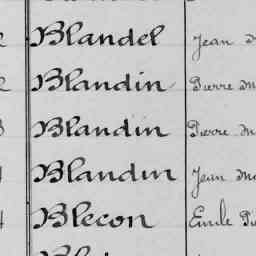 Blandel Jean
Blandin Pierre
Blandin Pierre
Blandin Jean
Blecon Emile